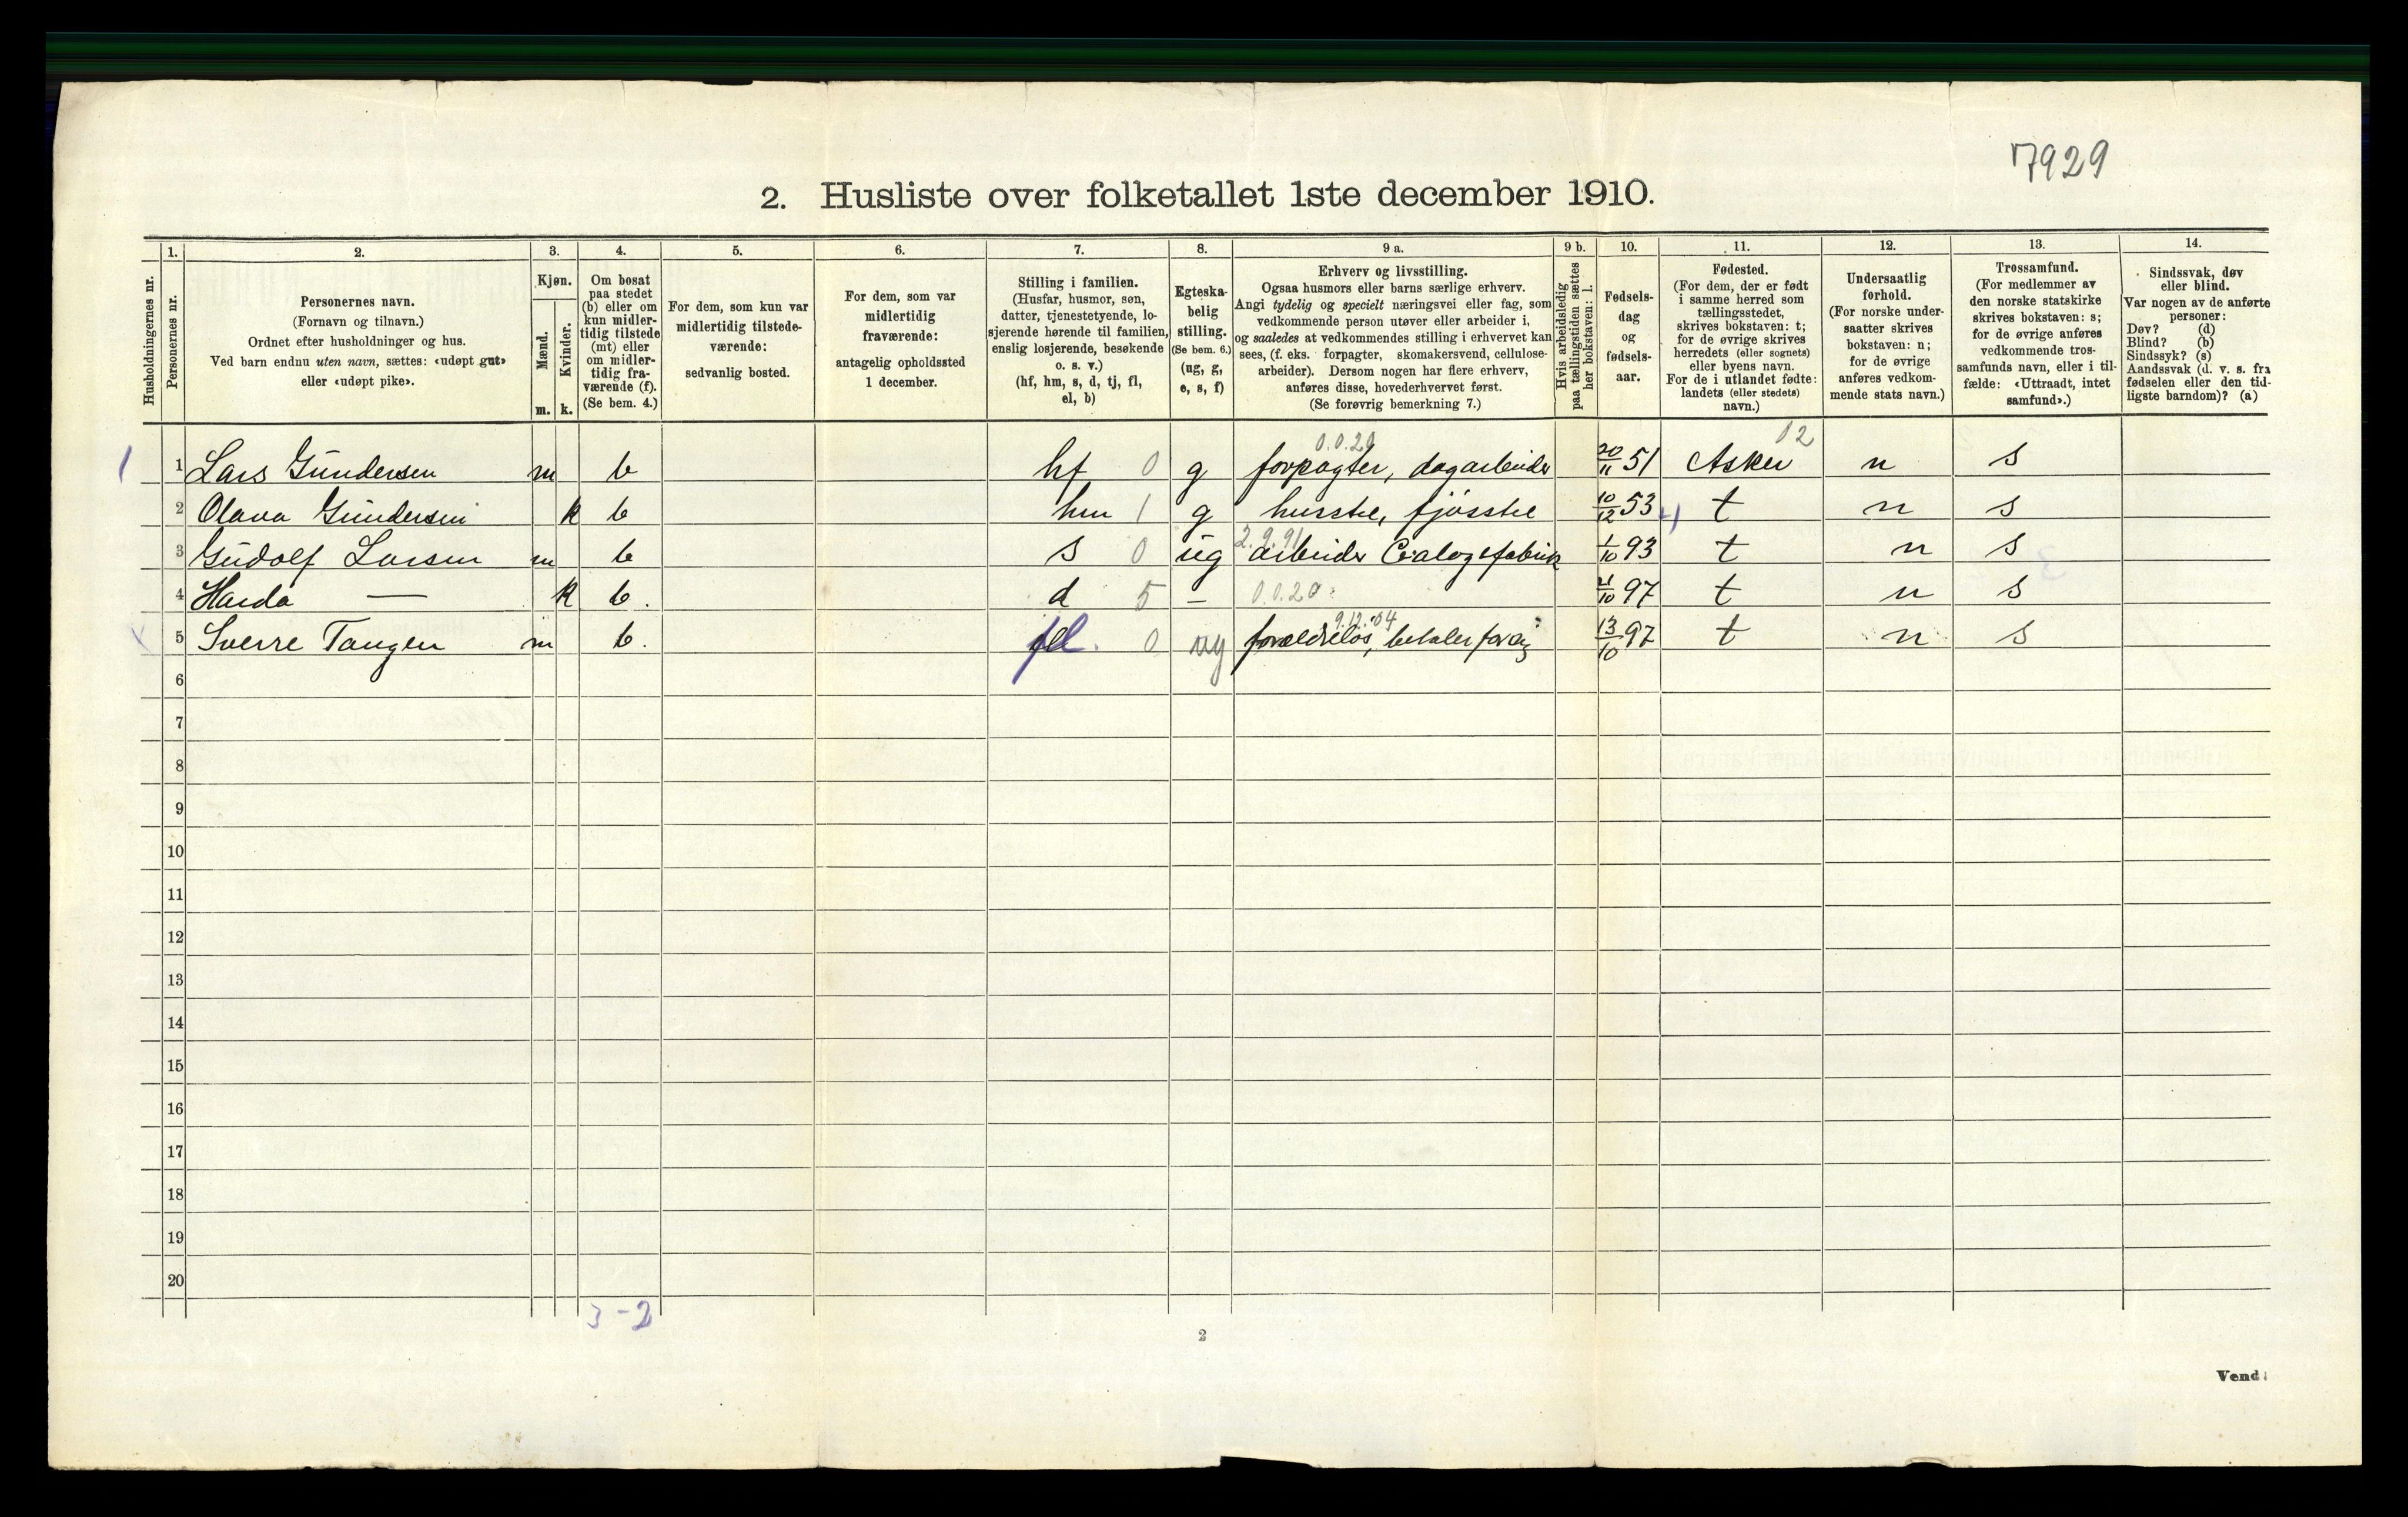 7929
2. Husliste over folketallet 1ste december 1910.
Husholdningernes nr.
1.
Personernes nr.
2.
Personernes navn.
(Fornavn og tilnavn.)
Ordnet efter husholdninger og hus.
Ved barn endnu uten navn, sættes: «udøpt gut»
eller «udøpt pike».
3.
Kjøn.
Mænd.
Kvinder.
m. k.
4.
Om bosat
paa stedet
(b) eller om
kun midler-
tidig tilstede
(mt) eller
om midler-
tidig fra-
værende (f).
(Se bem. 4.)
5.
For dem, som kun var
midlertidig tilstede-
værende:
sedvanlig bosted.
6.
For dem, som var
midlertidig
fraværende:
antagelig opholdssted
1 december.
7.
Stilling i familien.
(Husfar, husmor, søn,
datter, tjenestetyende, lo-
sjerende hørende til familien,
enslig losjerende, besøkende
o. s. v.)
(hf, hm, s, d, tj, fl,
el, b)
8.
Egteska-
belig
stilling.
(Se bem. 6.)
(ug, g,
e, s, f)
9 a.
Erhverv og livsstilling.
Ogsaa husmors eller barns særlige erhverv.
Angi tydelig og specielt næringsvei eller fag, som
vedkommende person utøver eller arbeider i,
og saaledes at vedkommendes stilling i erhvervet kan
sees, (f. eks. forpagter, skomakersvend, cellulose-
arbeider). Dersom nogen har flere erhverv,
anføres disse, hovederhvervet først.
(Se forøvrig bemerkning 7.)
9 b.
Hvis arbeidsledig
paa tællingstiden sættes
her bokstaven: l.
10.
Fødsels-
dag
og
fødsels-
aar.
11.
Fødested.
(For dem, der er født
i samme herred som
tællingsstedet,
skrives bokstaven: t;
for de øvrige skrives
herredets (eller sognets)
eller byens navn.
For de i utlandet fødte:
landets (eller stedets)
navn.)
12.
Undersaatlig
forhold.
(For norske under-
saatter skrives
bokstaven: n;
for de øvrige
anføres vedkom-
mende stats navn.)
13.
Trossamfund.
(For medlemmer av
den norske statskirke
skrives bokstaven: s;
for de øvrige anføres
vedkommende tros-
samfunds navn, eller i til-
fælde: «Uttraadt, intet
samfund».)
14.
Sindssvak, døv
eller blind.
Var nogen av de anførte
personer:
Døv? (d)
Blind? (b)
Sindssyk? (s)
Aandssvak (d. v. s. fra
fødselen eller den tid-
ligste barndom)? (a)
0.0.20 02
1 1 Lars Gundersen m b hf 0 g forpagter, dagarbeider 20/11 51 Asker n s
2 Olava Gundersen k b hm 1 g husstel, fjøsstel 10/12 53 t n s
2.9.91
3 Gudolf Larsen m b s 0 ug arbeider 1/10 93 t n s
4 k b. d 5 — 0.0.20 97 t n s
9.12.04
5 Sverre Tangen m b. fl. 0 ug forældreløs, betaler for 13/10 97 t n s
6
7
8
9
10
11
12
13
14
15
16
17
18
19
20
3 - 2
2
Vend!